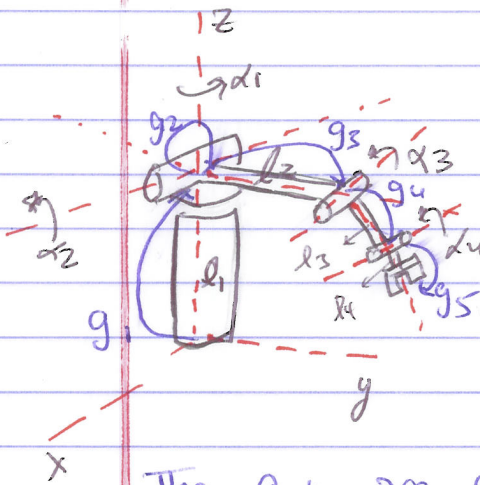 z
α1
g2
g3
l2
α3
g4
α2
l3
α4
l1
l4
g5
g
y
x